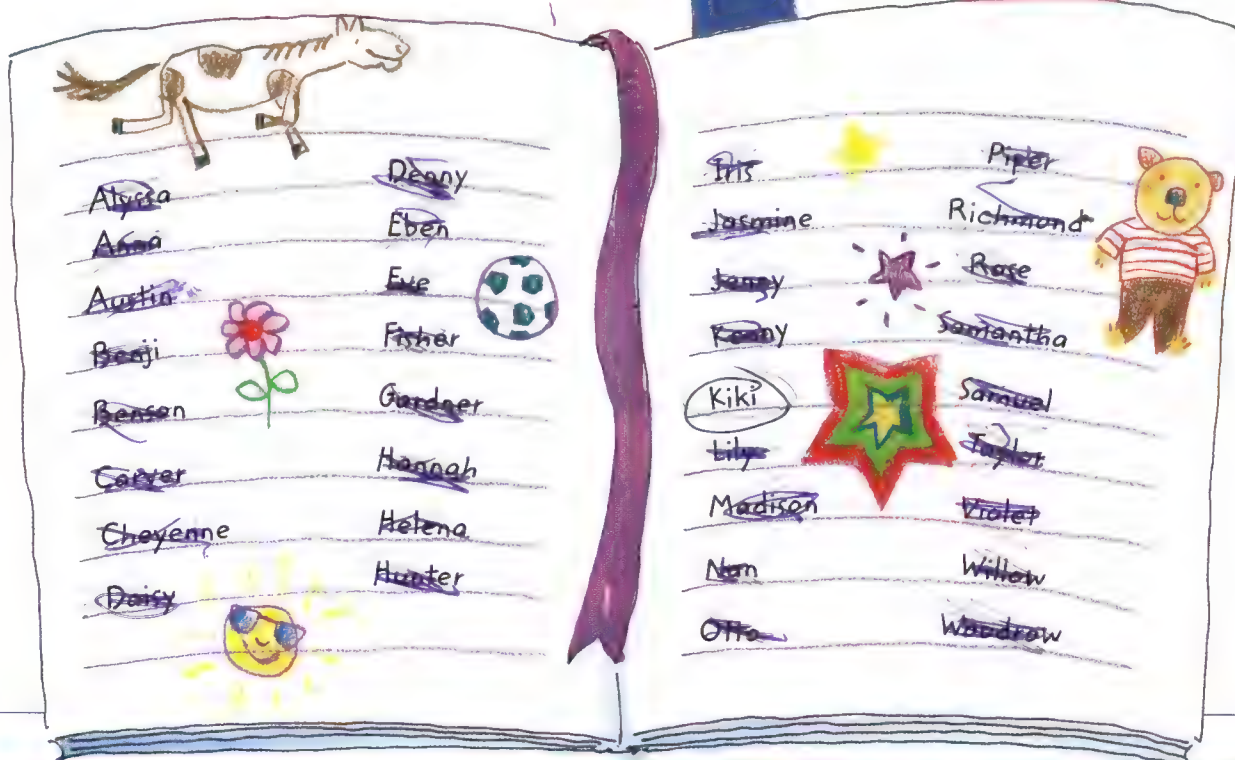 Alyssa
Anna
Austin
Benji
Benson
Carver
Cheyenne
Daisy
Denny
Eben
Eve
Fisher
Gardner
Hannah
Helena
Hunter
Iris
Jasmine
Jenny
Kenny
Kiki
Lily
Madison
Nan
Otto
Piper
Richmond
Rose
Samantha
Samuel
Taylor
Violet
Willow
Woodrow